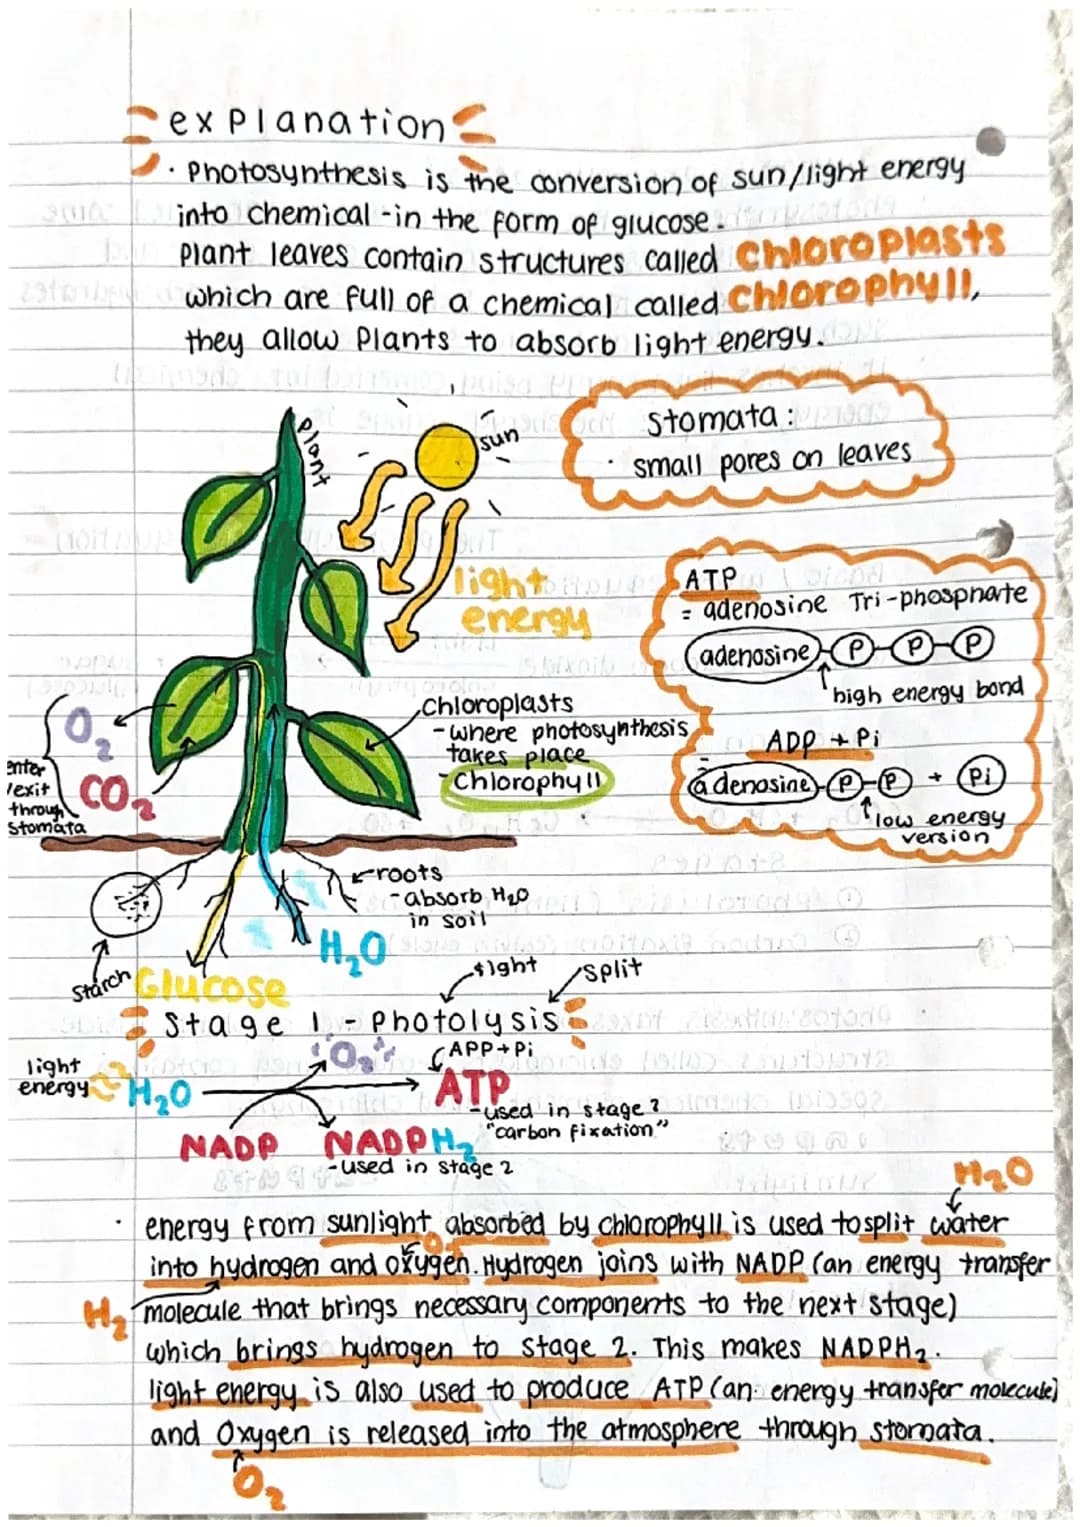 explanation
· Photosynthesis is the conversion of sun/light energy
into chemical - in the form of glucose.
Plant leaves contain structures called chloroplasts
which are full of a chemical called chlorophyll,
they allow Plants to absorb light energy.
plant
sun
light
energy
stomata:
· small pores on leaves
ATP
= adenosine Tri-phosphate
adenosine P P P
high energy bond
ADP + Pi
= adenosine P P + Pi
low energy
version
O2
CO2
enter
/exit
through
stomata
chloroplasts
- where photosynthesis
takes place
- Chlorophyll
roots
- absorb H2O
in soil
H2O
starch
Glucose
light
split
Stage 1 - Photolysis
light
energy
H2O
O2
APP + Pi
ATP
- used in stage 2
"carbon fixation"
NADP
NADPH2
- used in stage 2
H2O
· energy from sunlight absorbed by chlorophyll is used to split water
O2
into hydrogen and oxygen. Hydrogen joins with NADP (an energy transfer
H2
molecule that brings necessary components to the next stage)
which brings hydrogen to stage 2. This makes NADPH2.
light energy is also used to produce ATP (an energy transfer molecule)
and Oxygen is released into the atmosphere through stomata.
O2